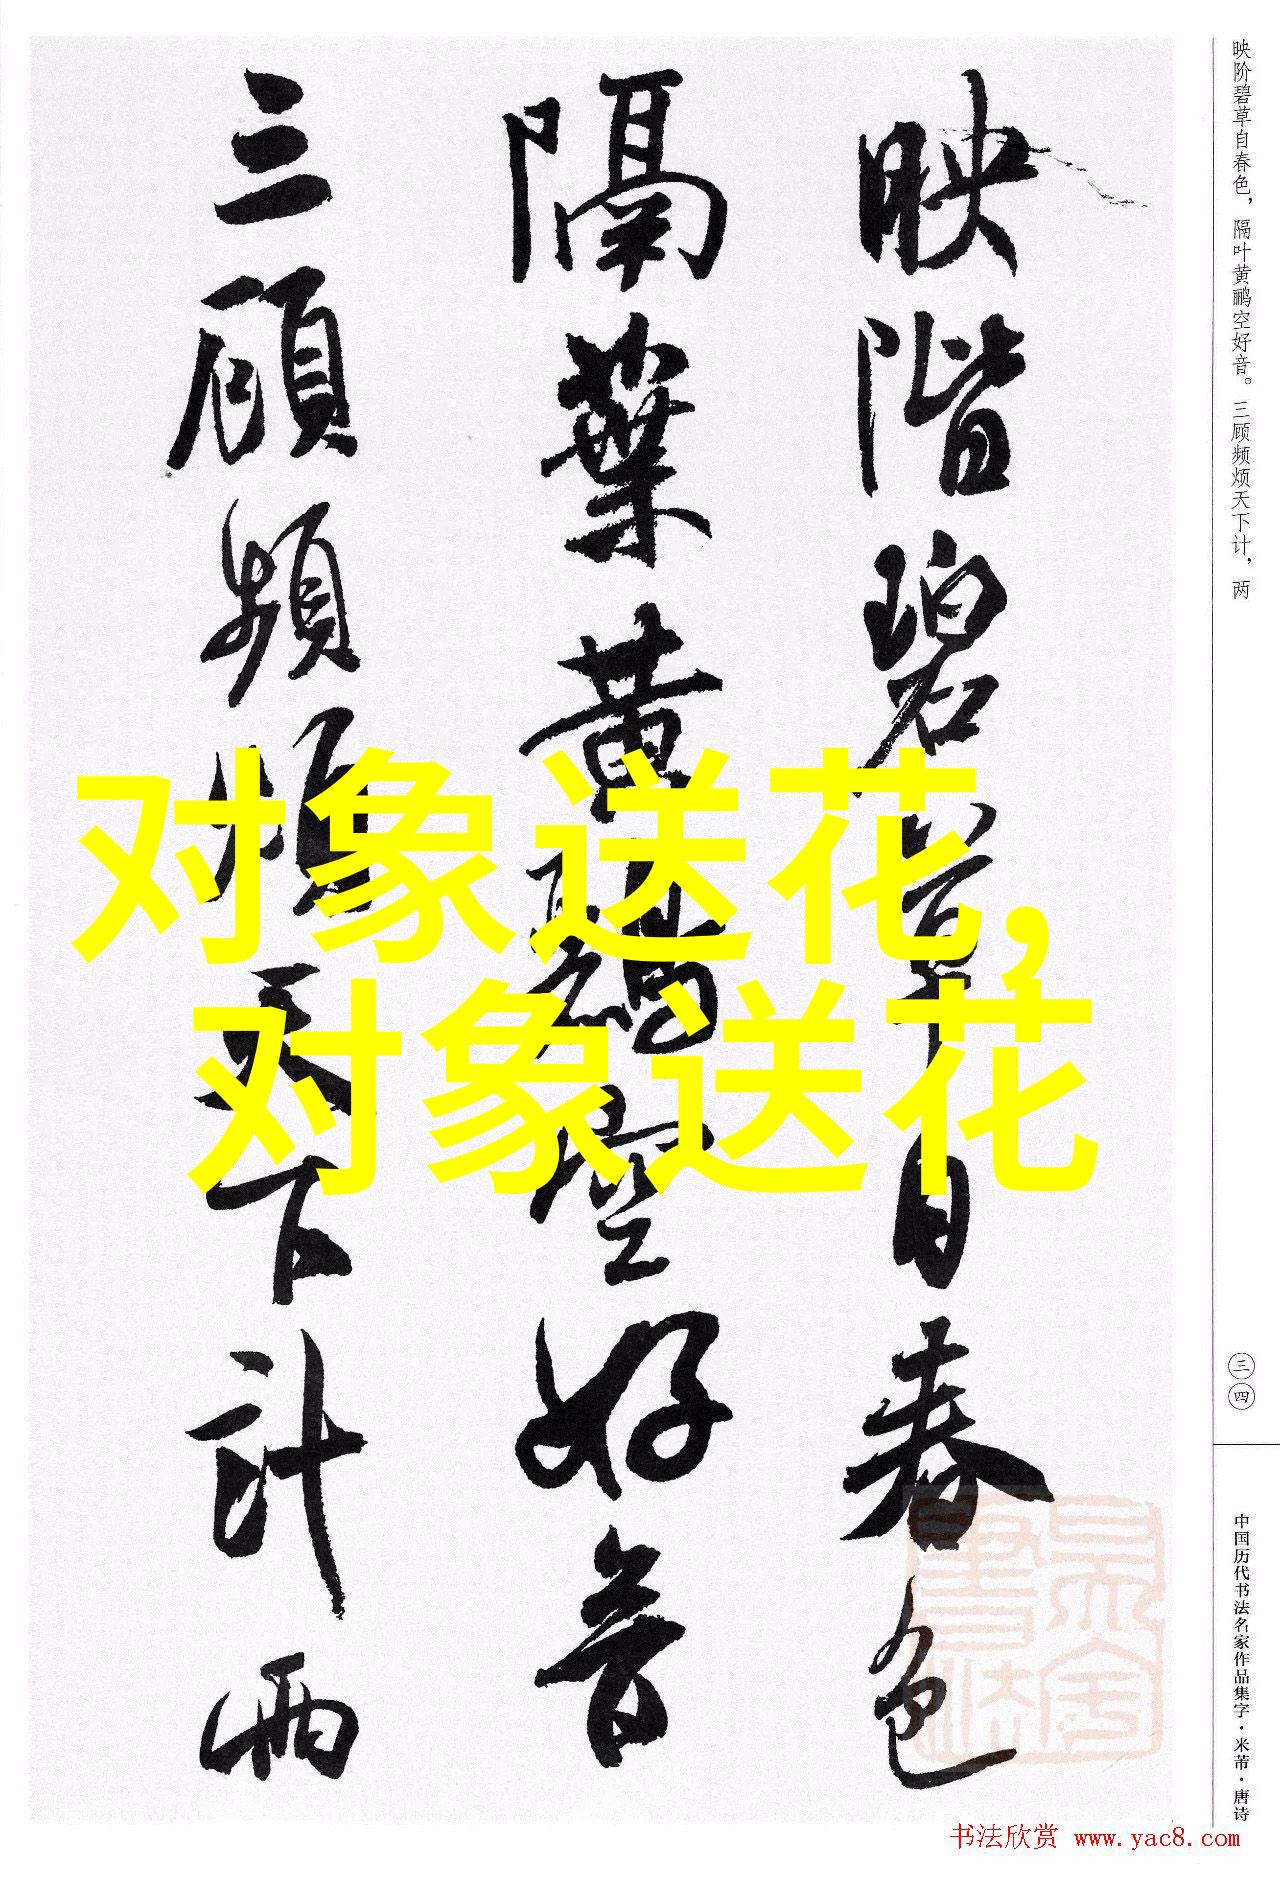 映階碧草自春色
隔葉黄鸝空好音
三顧頻煩天下計兩
对象送花，
对象送花
映阶碧草自春色，隔叶黄鹂空好音。三顾频烦天下计，两
三四
中国历代书法名家作品集字·米芾·唐诗
书法欣赏 www.yac8.com